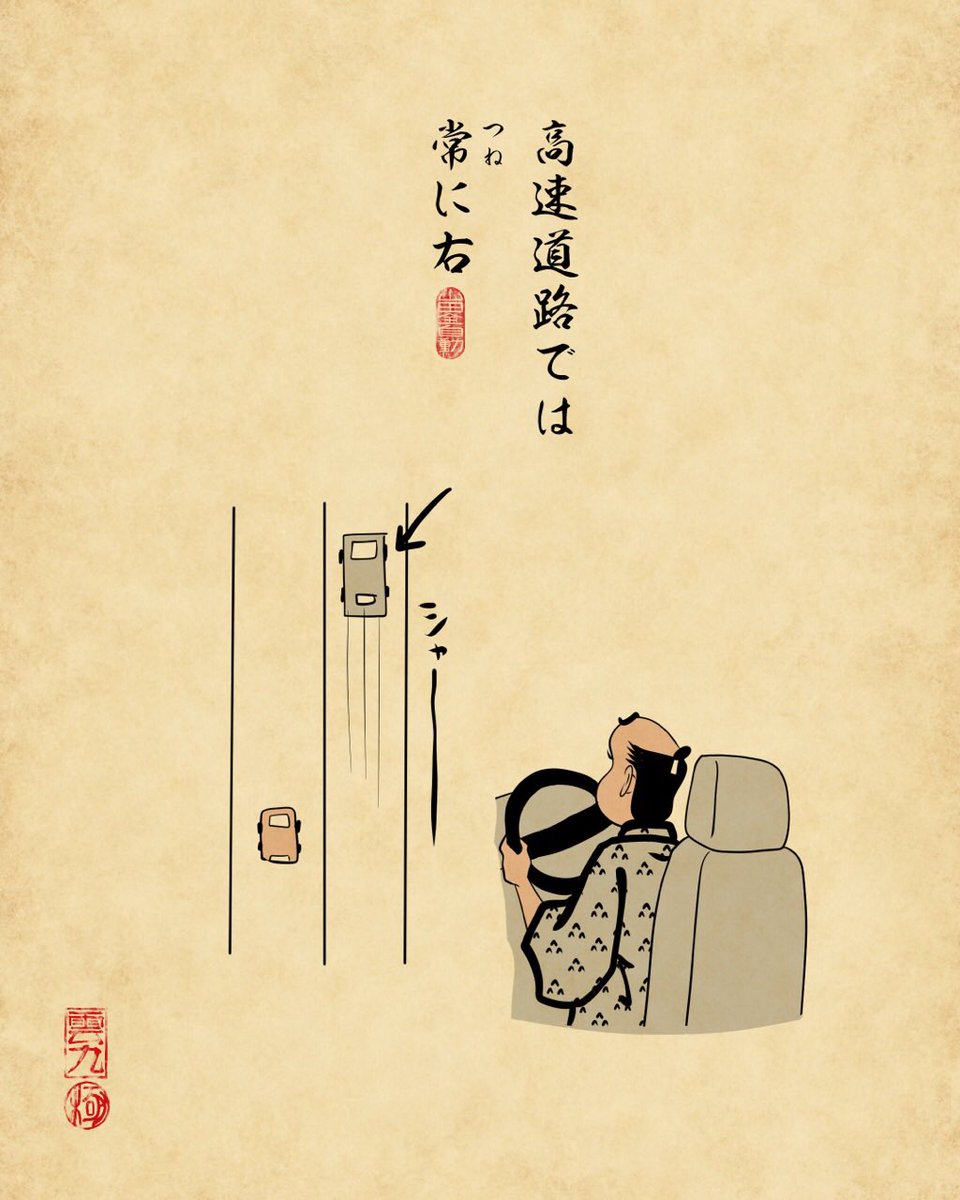 高速道路では
常に右
つね
シャー